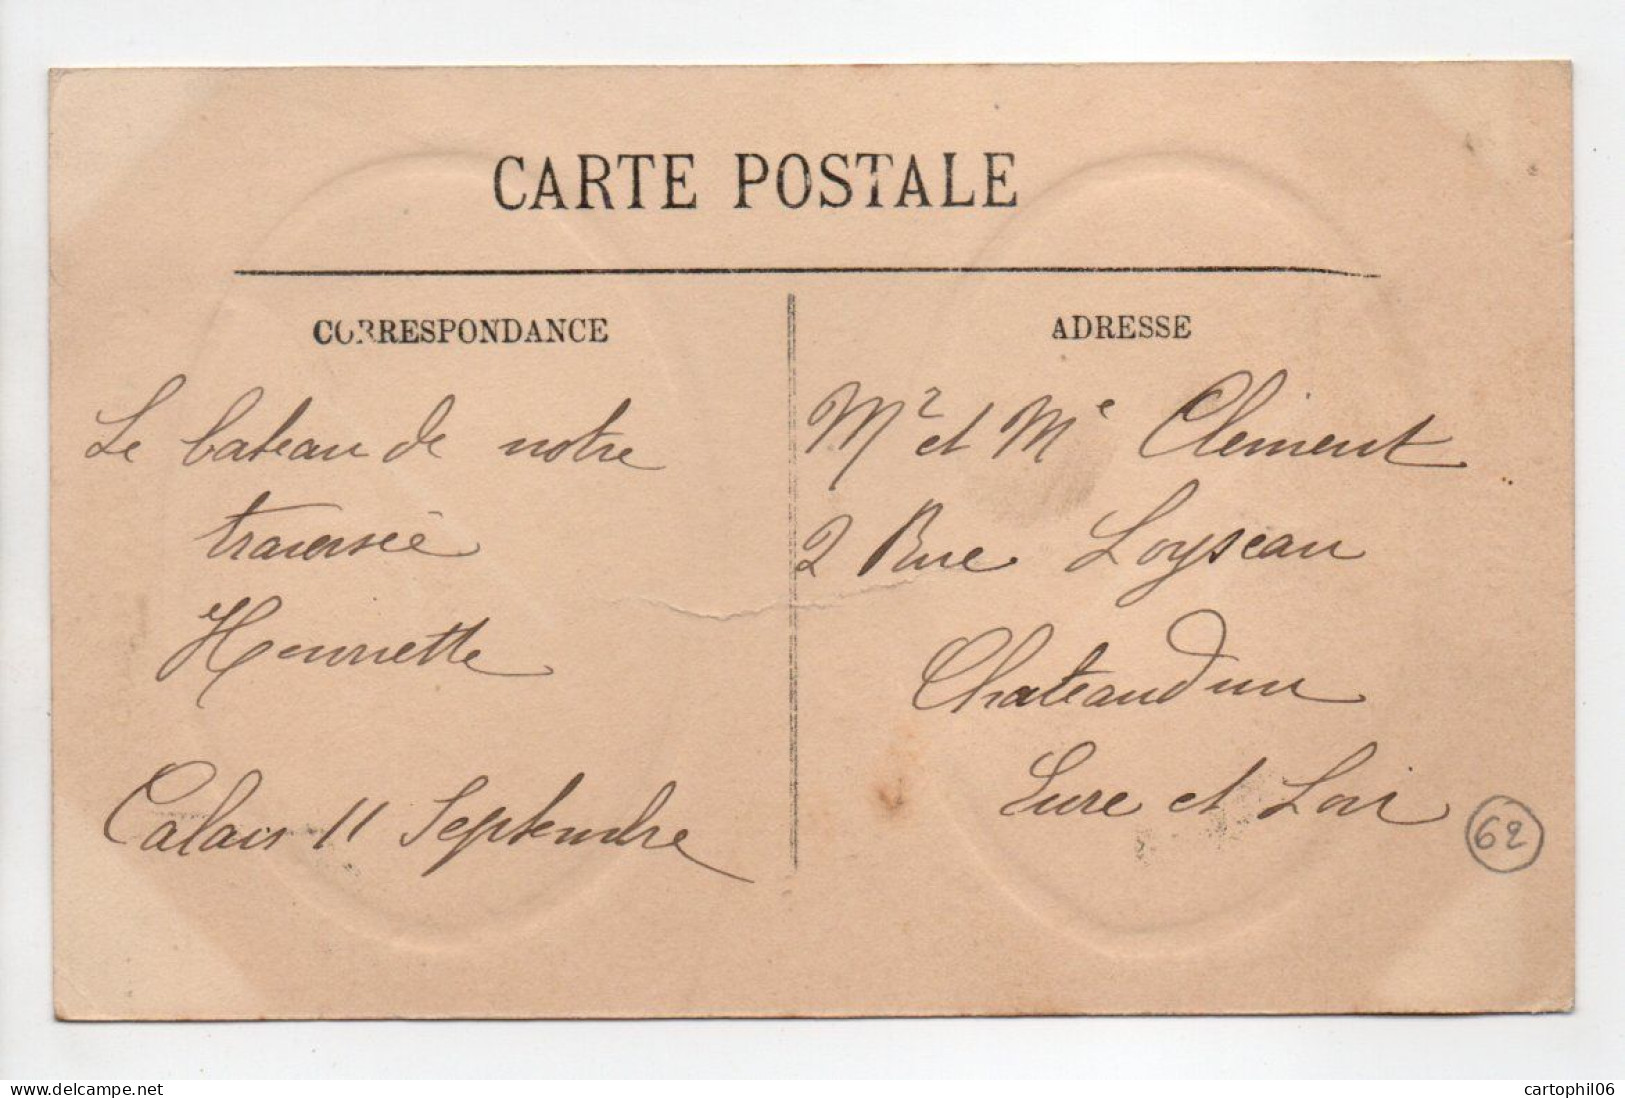 CARTE POSTALE
CORRESPONDANCE
Le bateau de notre
traversée
Henriette
Calais 11 Septembre
ADRESSE
Mr et Me Clément
2 Rue Loyseau
Chateaudun
Eure et Loir
62
www.delcampe.net
cartophil06